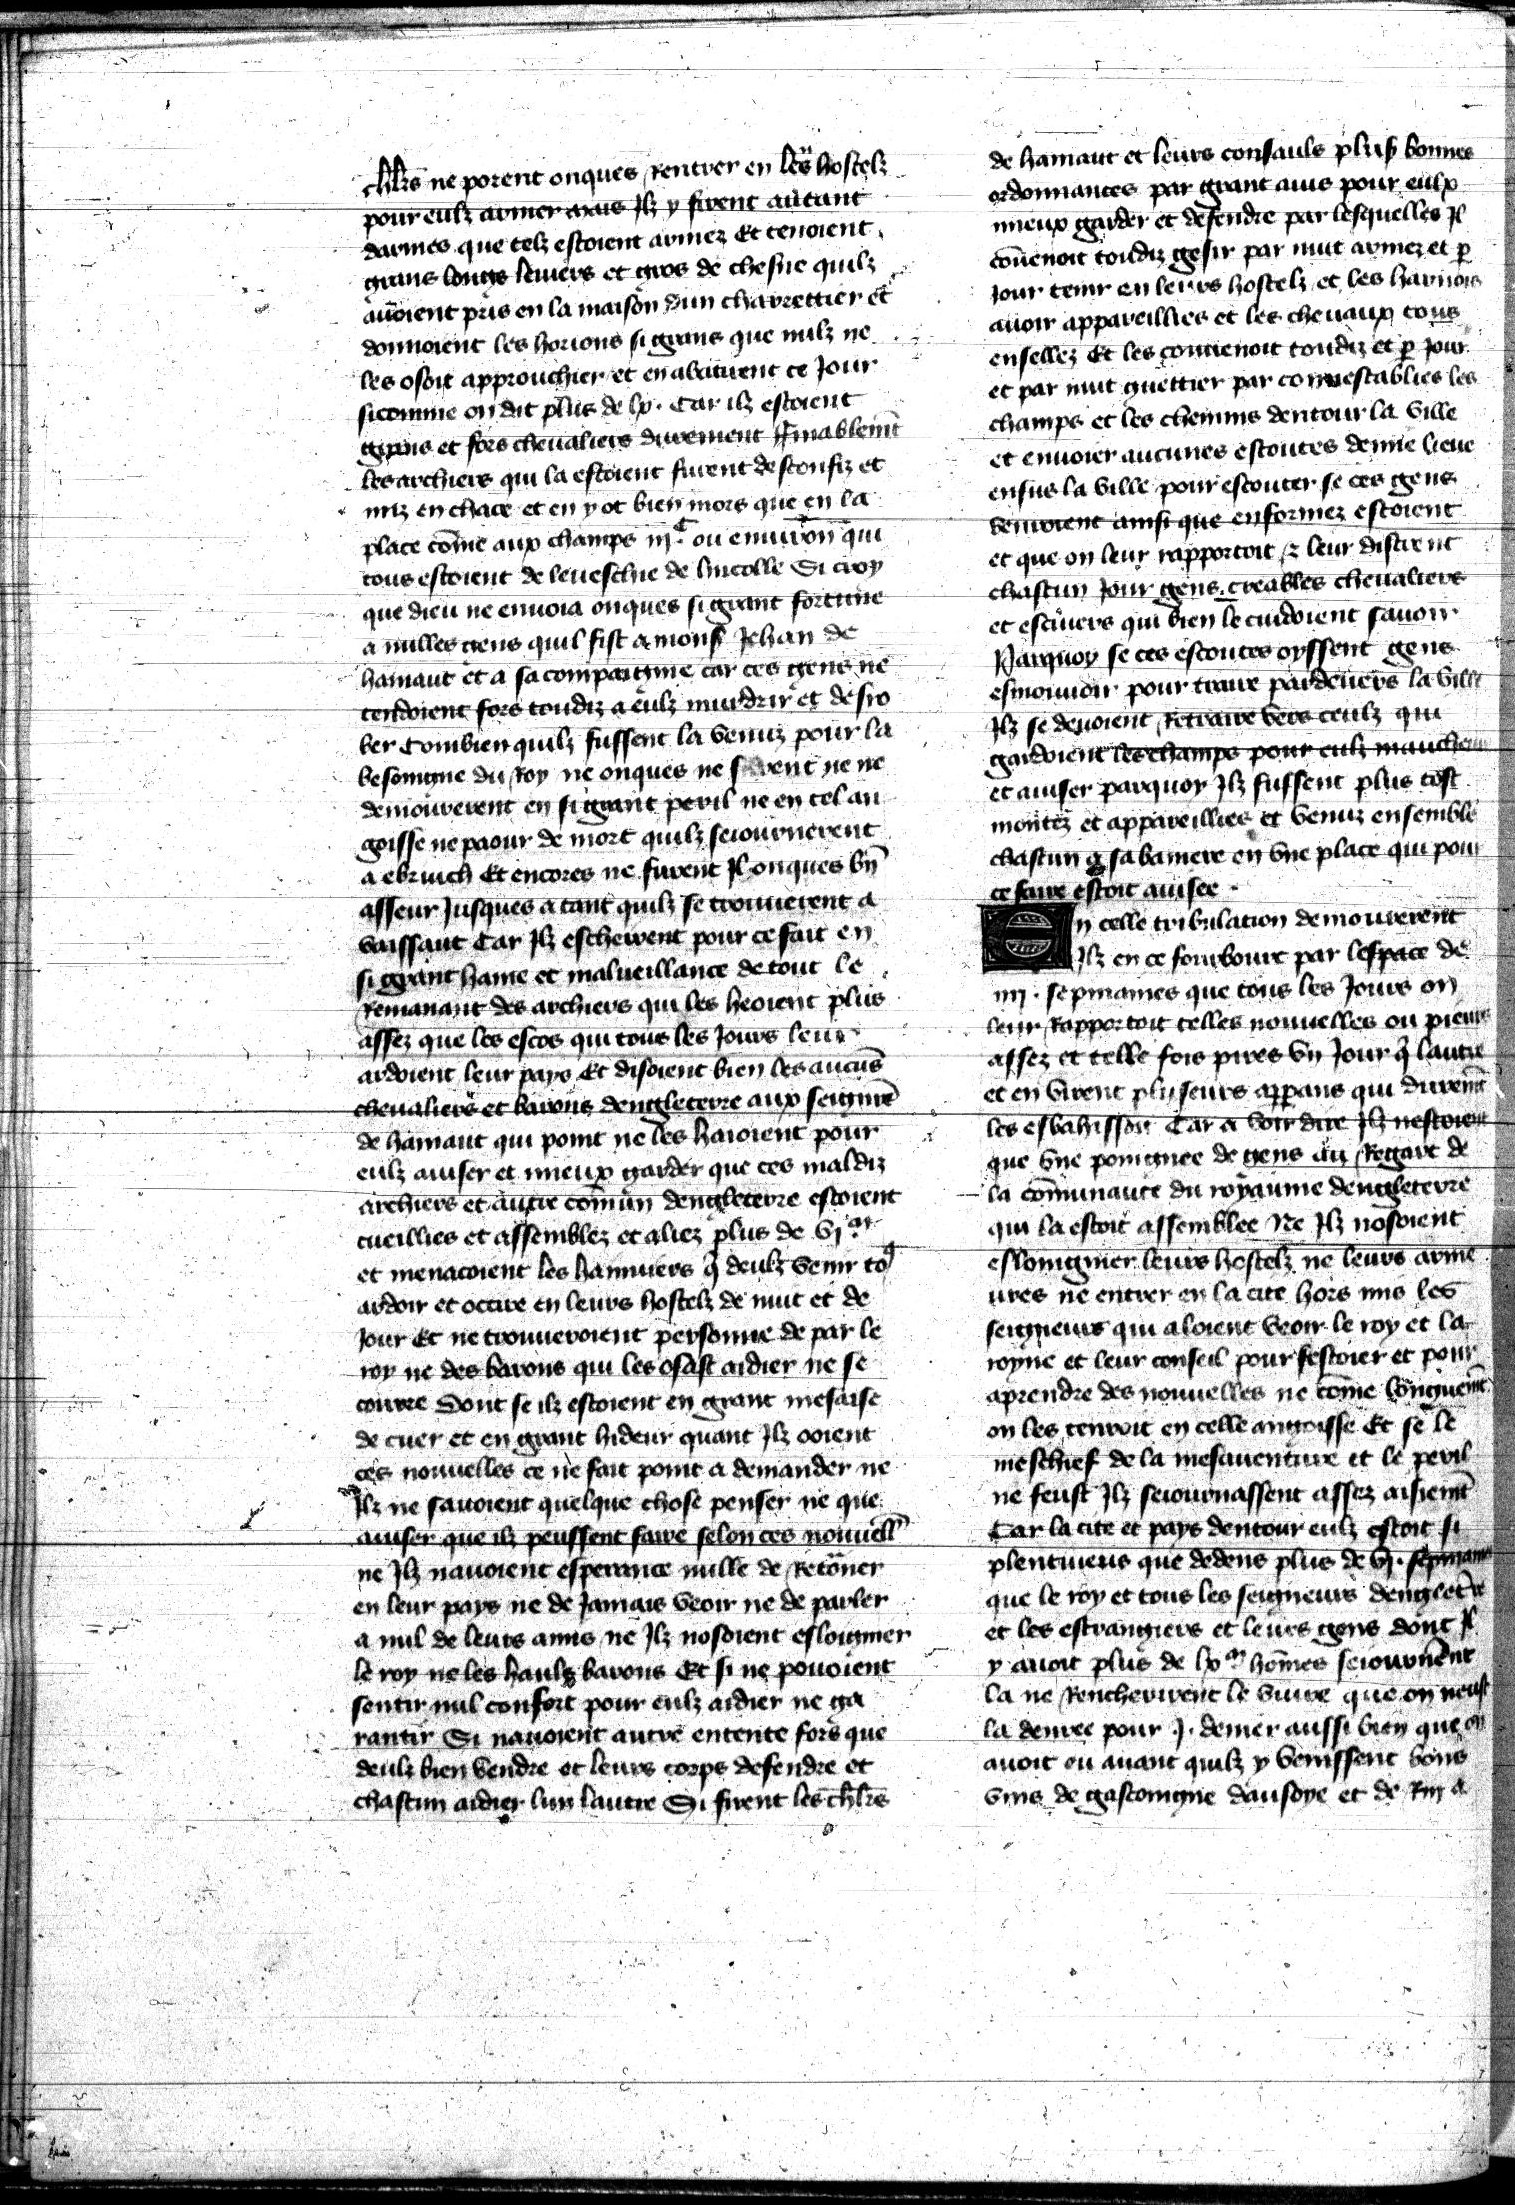 chlrs ne porent onques Rentrer en leurs hostelz
pour eulz armer mais Ilz y firent autant
darmes que telz estoient armez Et tenoient
grans longs leuiers et gros de chesne quilz
auoient pris en la maison dun charrettier et
donnoient les horions si grans que nulz ne
les osoit approuchier et en abatirent ce Jour
sicomme on dit plus de lx. Car ilz estoient
grans et fors cheualiers durement ffinablemt
les archiers qui la estoient furent desconfiz et
miz en chace et en y ot bien mors que en la
place come aux champs iijc ou enuiron qui
tous estoient de leueschie de lincolle Si croy
que dieu ne enuoia onques si grant fortune
a nulles gens quil fist a mons Jehan de
hainaut et a sa compaignie car ces gens ne
tendoient fors toudiz a eulz murdrir et desro
ber Combien quilz fussent la venuz pour la
besoingne du Roy ne onques ne furent ne ne
demourerent en si grant peril ne en tel an
goisse ne paour de mort quilz seiournerent
a ebruich Et encores ne furent Il onques bn
asseur Jusques a tant quilz se trouuerent a
vaissant Car Ilz escheirent pour ce fait en
si grant haine et malueillance de tout le
Remanant des archiers qui les heoient plus
assez que les escos qui tous les Jours leur
ardoient leur pays Et disoient bien les aucus
cheualiers et barons dengleterre aux seignrs
de hainaut qui point ne les haioient pour
eulz auiser et mieux garder que ces maldiz
archiers et autre comun dengleterre estoient
cueillies et assemblez et aliez plus de vj m
et menacoient les hainuiers q deulz venir to9
ardoir et occire en leurs hostelz de nuit et de
Jour Et ne trouueroient personne de par le
roy ne des barons qui les osast aidier ne se
courre Dont se ilz estoient en grant mesaise
de cuer et en grant hideur quant Ilz ooient
ces nouuelles ce ne fait point a demander ne
Ilz ne sauoient quelque chose penser ne que
auiser que ilz peussent faire selon ces nouuell
ne Ilz nauoient esperance nulle de Retourner
en leur pays ne de Jamais veoir ne de parler
a nul de leurs amis ne Ilz nosoient esloignier
le roy ne les haulz barons Et si ne pouoient
sentir nul confort pour eulz aidier ne ga
rantir Si nauoient autre entente fors que
deulz bien vendre et leurs corps defendre et
chascun aidier lun lautre Si firent les chlrs
de hainaut et leurs consauls plus bonnes
ordonnances par grant auis pour eulx
mieux garder et defendre par lesquelles Il
couenoit toudiz gesir par nuit armez et p
Jour tenir en leurs hostelz et les harnois
auoir appareillies et les cheuaux tous
ensellez Et les conuenoit toudiz et p Jour
et par nuit guettier par connestablies les
champs et les chemins dentour la ville
et enuoier aucunes escoutes demie lieue
ensus la ville pour escouter se ces gens
venroient ainsi que enformez estoient
et que on leur rapportoit z leur disirent
chascun Jour gens creables cheualiers
et escuiers qui bien le cuidoient sauoir
Parquoy se ces escoutes oyssent gens
esmouuoir pour traire pardeuers la ville
Ilz se deuoient Retraire vers ceulz qui
gardoient les champs pour eulz
et auiser parquoy Ilz fussent plus tost
montez et appareillies et venuz ensemble
chascun a sa baniere en vne place qui pour
ce faire estoit auisee.
En celle tribulation demourerent
Ilz en ce fourbourc par lespace de
iiij. sepmaines que tous les Jours on
leur Rapportoit telles nouuelles ou pieurs
assez et telle fois pires vn Jour q lautre
et en virent pluseurs apparans qui duremt
les esbahissoit Car a voir dire Ilz nestoient
que vne poingnee de gens au Regart de
la communaute du royaume dengleterre
qui la estoit assemblee Ne Ilz nosoient
esloingnier leurs hostelz ne leurs arme
ures ne entrer en la cite hors mis les
seigneurs qui aloient veoir le roy et la
royne et leur conseil pour festoier et pour
aprendre des nouuelles ne come longuemt
on les tenroit en celle angoisse Et se le
meschief de la mesauenture et le peril
ne feust Ilz seiournassent assez aisiemt
Car la cite et pays dentour eulz estoit si
plentiueus que dedens plus de vj. sepmaines
que le roy et tous les seigneurs dengletre
et les estrangiers et leurs gens dont Il
y auoit plus de lx m homes seiournerent
la ne Rencherirent le viure que on neust
la denree pour j. denier aussi bien que on
auoit eu auant quilz y venissent bons
vins de gascoingne dausoye et de Rin a